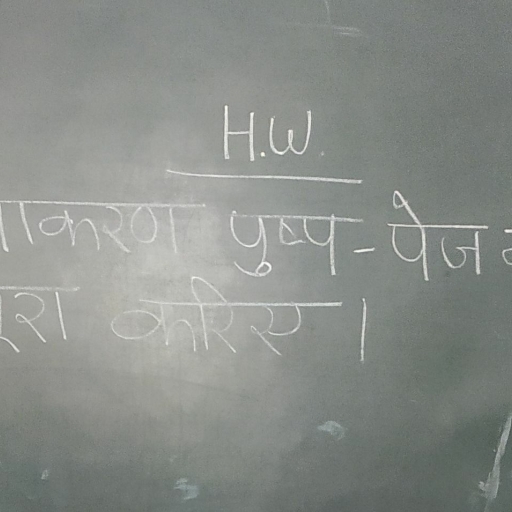 H.W.
याकरण पुष्प - पेज
रा करिए ।